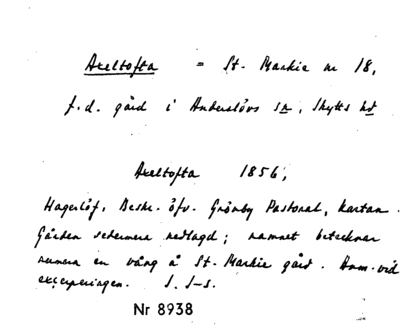 Axeltofta = St. Markie nr 18,
f.d. gård i Anderslövs sn, Skytts hd
Axeltofta 1856,
Hagerlöf, Beskr. öfv. Grönby Pastorat, kartan.
Gården sedermera nedlagd; namnet betecknar
numera en vång å St. Markie gård. Anm. vid
excerperingen. S. S-s.
Nr 8938